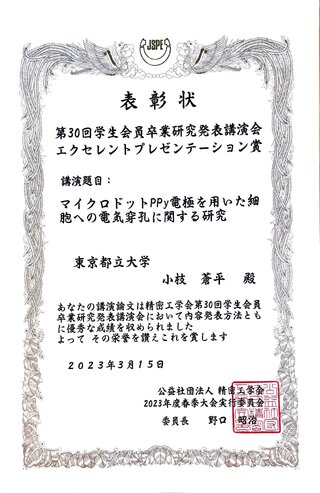 JSPE
表彰状
第30回学生会員卒業研究発表講演会
エクセレントプレゼンテーション賞
講演題目：
マイクロドットPPy電極を用いた細
胞への電気穿孔に関する研究
東京都立大学
小枝 蒼平 殿
あなたの講演論文は精密工学会第30回学生会員
卒業研究発表講演会において内容発表方法とも
に優秀な成績を収められました
よって その栄誉を讃えこれを賞します
2023年3月15日
公益社団法人 精密工学会
2023年度春季大会実行委員会
委員長 野口 昭治